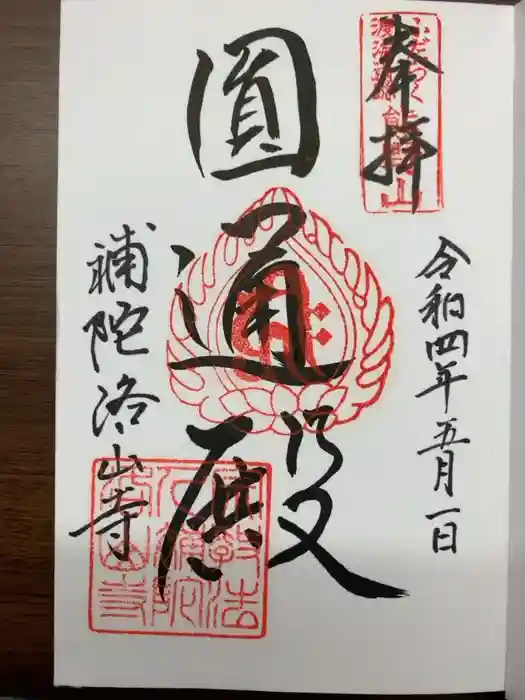 奉拝
令和四年五月一日
圓通殿
補陀洛山寺